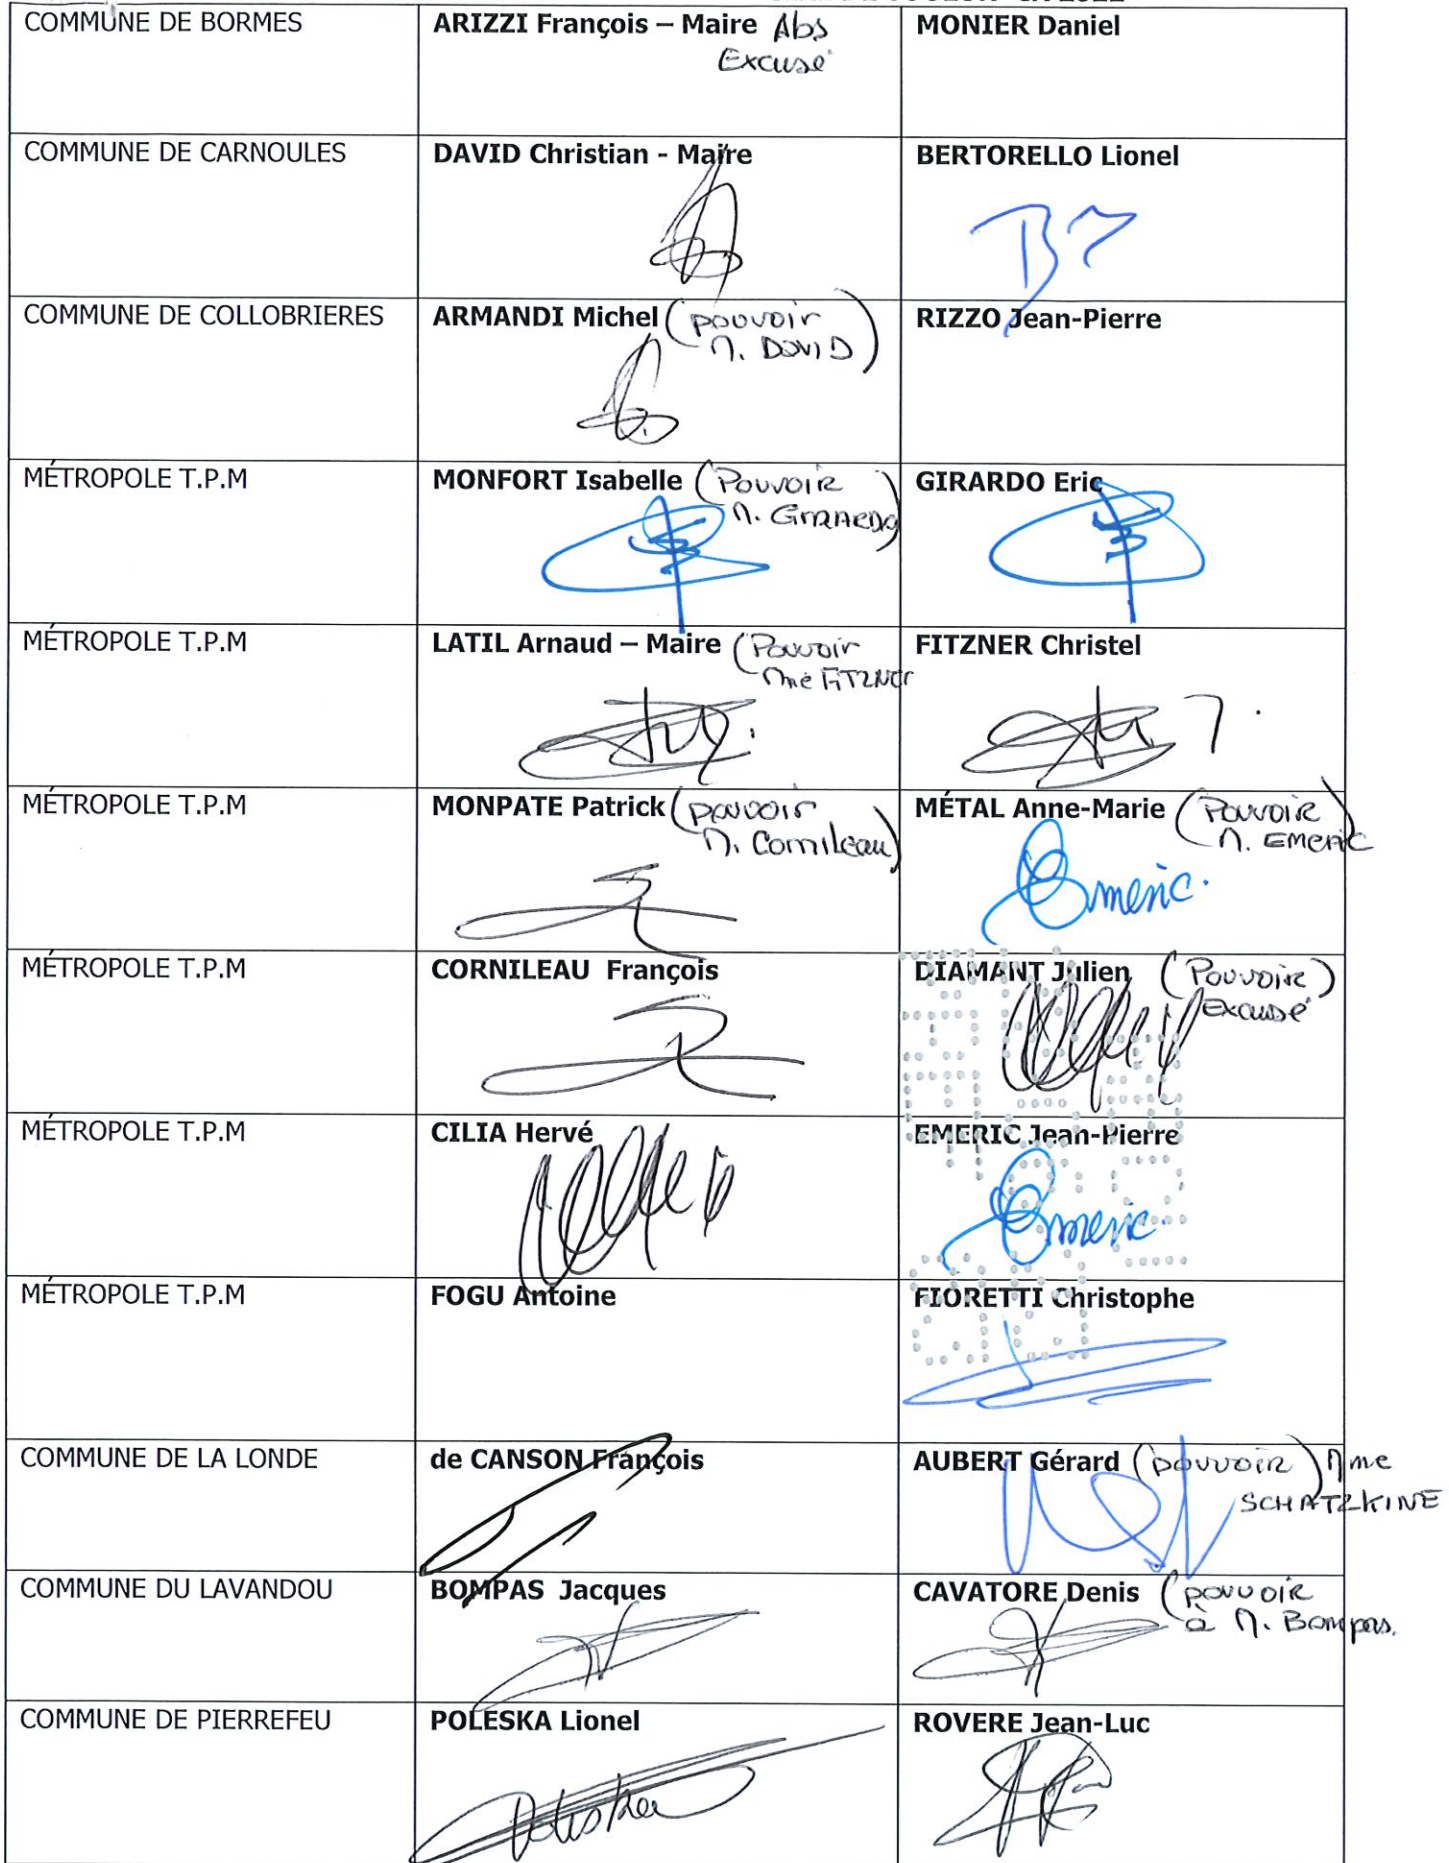 COMMUNE DE BORMES
ARIZZI François – Maire Abs
Excusé
MONIER Daniel
COMMUNE DE CARNOULES
DAVID Christian - Maire
BERTORELLO Lionel
COMMUNE DE COLLOBRIERES
ARMANDI Michel (pouvoir
M. DAVID)
RIZZO Jean-Pierre
MÉTROPOLE T.P.M
MONFORT Isabelle (Pouvoir
M. GIRARDO)
GIRARDO Eric
MÉTROPOLE T.P.M
LATIL Arnaud – Maire (Pouvoir
Mme FITZNER
FITZNER Christel
MÉTROPOLE T.P.M
MONPATE Patrick (pouvoir
M. Cornileau)
MÉTAL Anne-Marie (Pouvoir
M. EMERIC)
Emeric.
MÉTROPOLE T.P.M
CORNILEAU François
DIAMANT Julien (Pouvoir)
Excusé
MÉTROPOLE T.P.M
CILIA Hervé
EMERIC Jean-Pierre
Emeric.
MÉTROPOLE T.P.M
FOGU Antoine
FIORETTI Christophe
COMMUNE DE LA LONDE
de CANSON François
AUBERT Gérard (pouvoir) Mme
SCHATZKINE
COMMUNE DU LAVANDOU
BOMPAS Jacques
CAVATORE Denis (pouvoir
à M. Bompas.
COMMUNE DE PIERREFEU
POLESKA Lionel
Poleska
ROVERE Jean-Luc